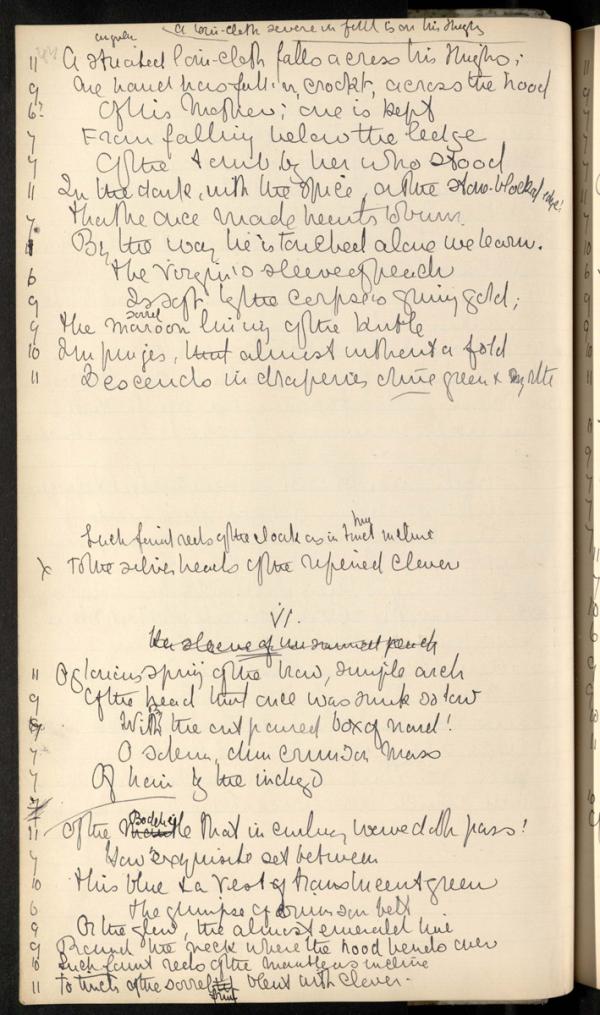 a loin-cloth severe in fold is on his thighs
angular
11 A striated loin-cloth falls across his thighs;
9 One hand has fall'n, crook't, across the hood
6? Of his Mother; one is kept
7 From falling below the ledge
7 Of the tomb by her who stood
11 In the dark, with the spice, at the stone-blocked edge!
7 That he once made hearts to burn
8 By the way he is touched alone we learn.
6 The Virgin's sleeve of peach
9 Is soft by the corpse's grey gold;
sorrel
9 The maroon lining of the kirtle
10 Impinges, that almost without a fold
11 Descends in draperies dune green & myrtle
hay
Such faint reds of the cloak as in tinct incline
x To the silver heads of the ripened clover
VI.
Her sleeve of peach
11 O glorious spring of the brow, simple arch
9 Of the head that once was sunk so low
8 With the out poured box of nard!
7 O solemn, dim crimson mass
7 Of hair by the indigo
7
Bodice
11 Of the mantle that in curling wave doth pass!
7 How exquisite set between
10 This blue & a vest of translucent green
6 The glimpse of crimson belt
9 Or the glow, the almost emerald line
9 Round the neck where the hood bends over
10 Such faint reds of the mantle as incline
11 To tincts of the sorrel blent with clover.